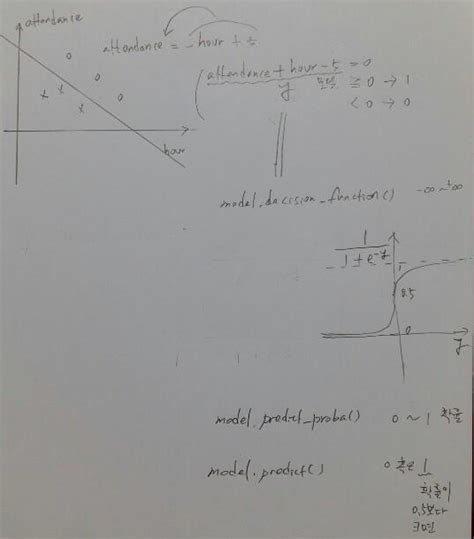 attendance
attendance = -hour + 5
attendance + hour - 5 = 0
y 모델 ≧ 0 → 1
< 0 → 0
hour
model.decision_function() -∞ ~ +∞
1
1 + e^-y
1
0.5
0
y
model.predict_proba() 0 ~ 1 확률
model.predict() 0 혹은 1
확률이
0.5보다
크면